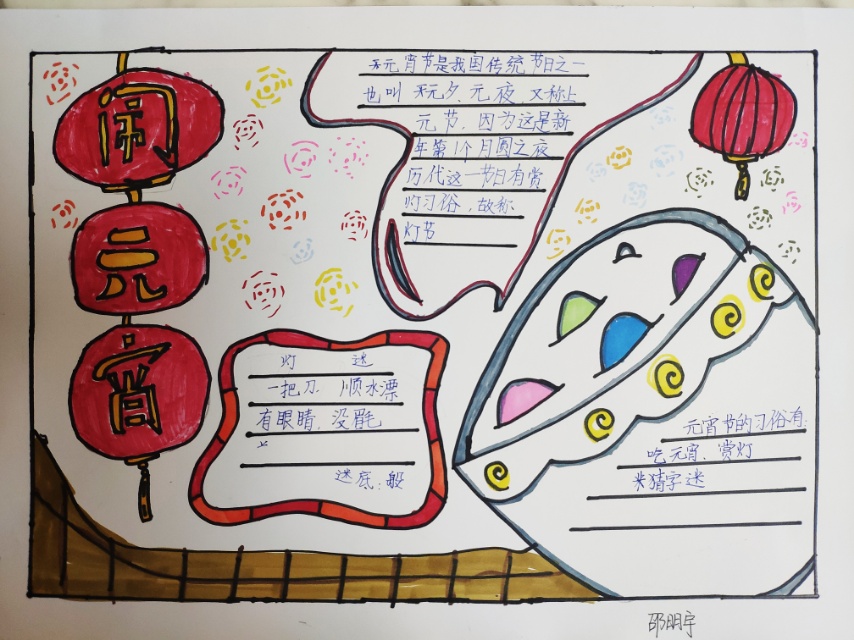 闹元宵
元宵节是我国传统节日之一
也叫元夕、元夜、又称上
元节，因为这是新
年第1个月圆之夜
历代这一节日有赏
灯习俗，故称
灯节
灯 迷
一把刀 顺水漂
有眼睛，没眉毛
迷底：般
元宵节的习俗有：
吃元宵、赏灯
猜字迷
邵明宇